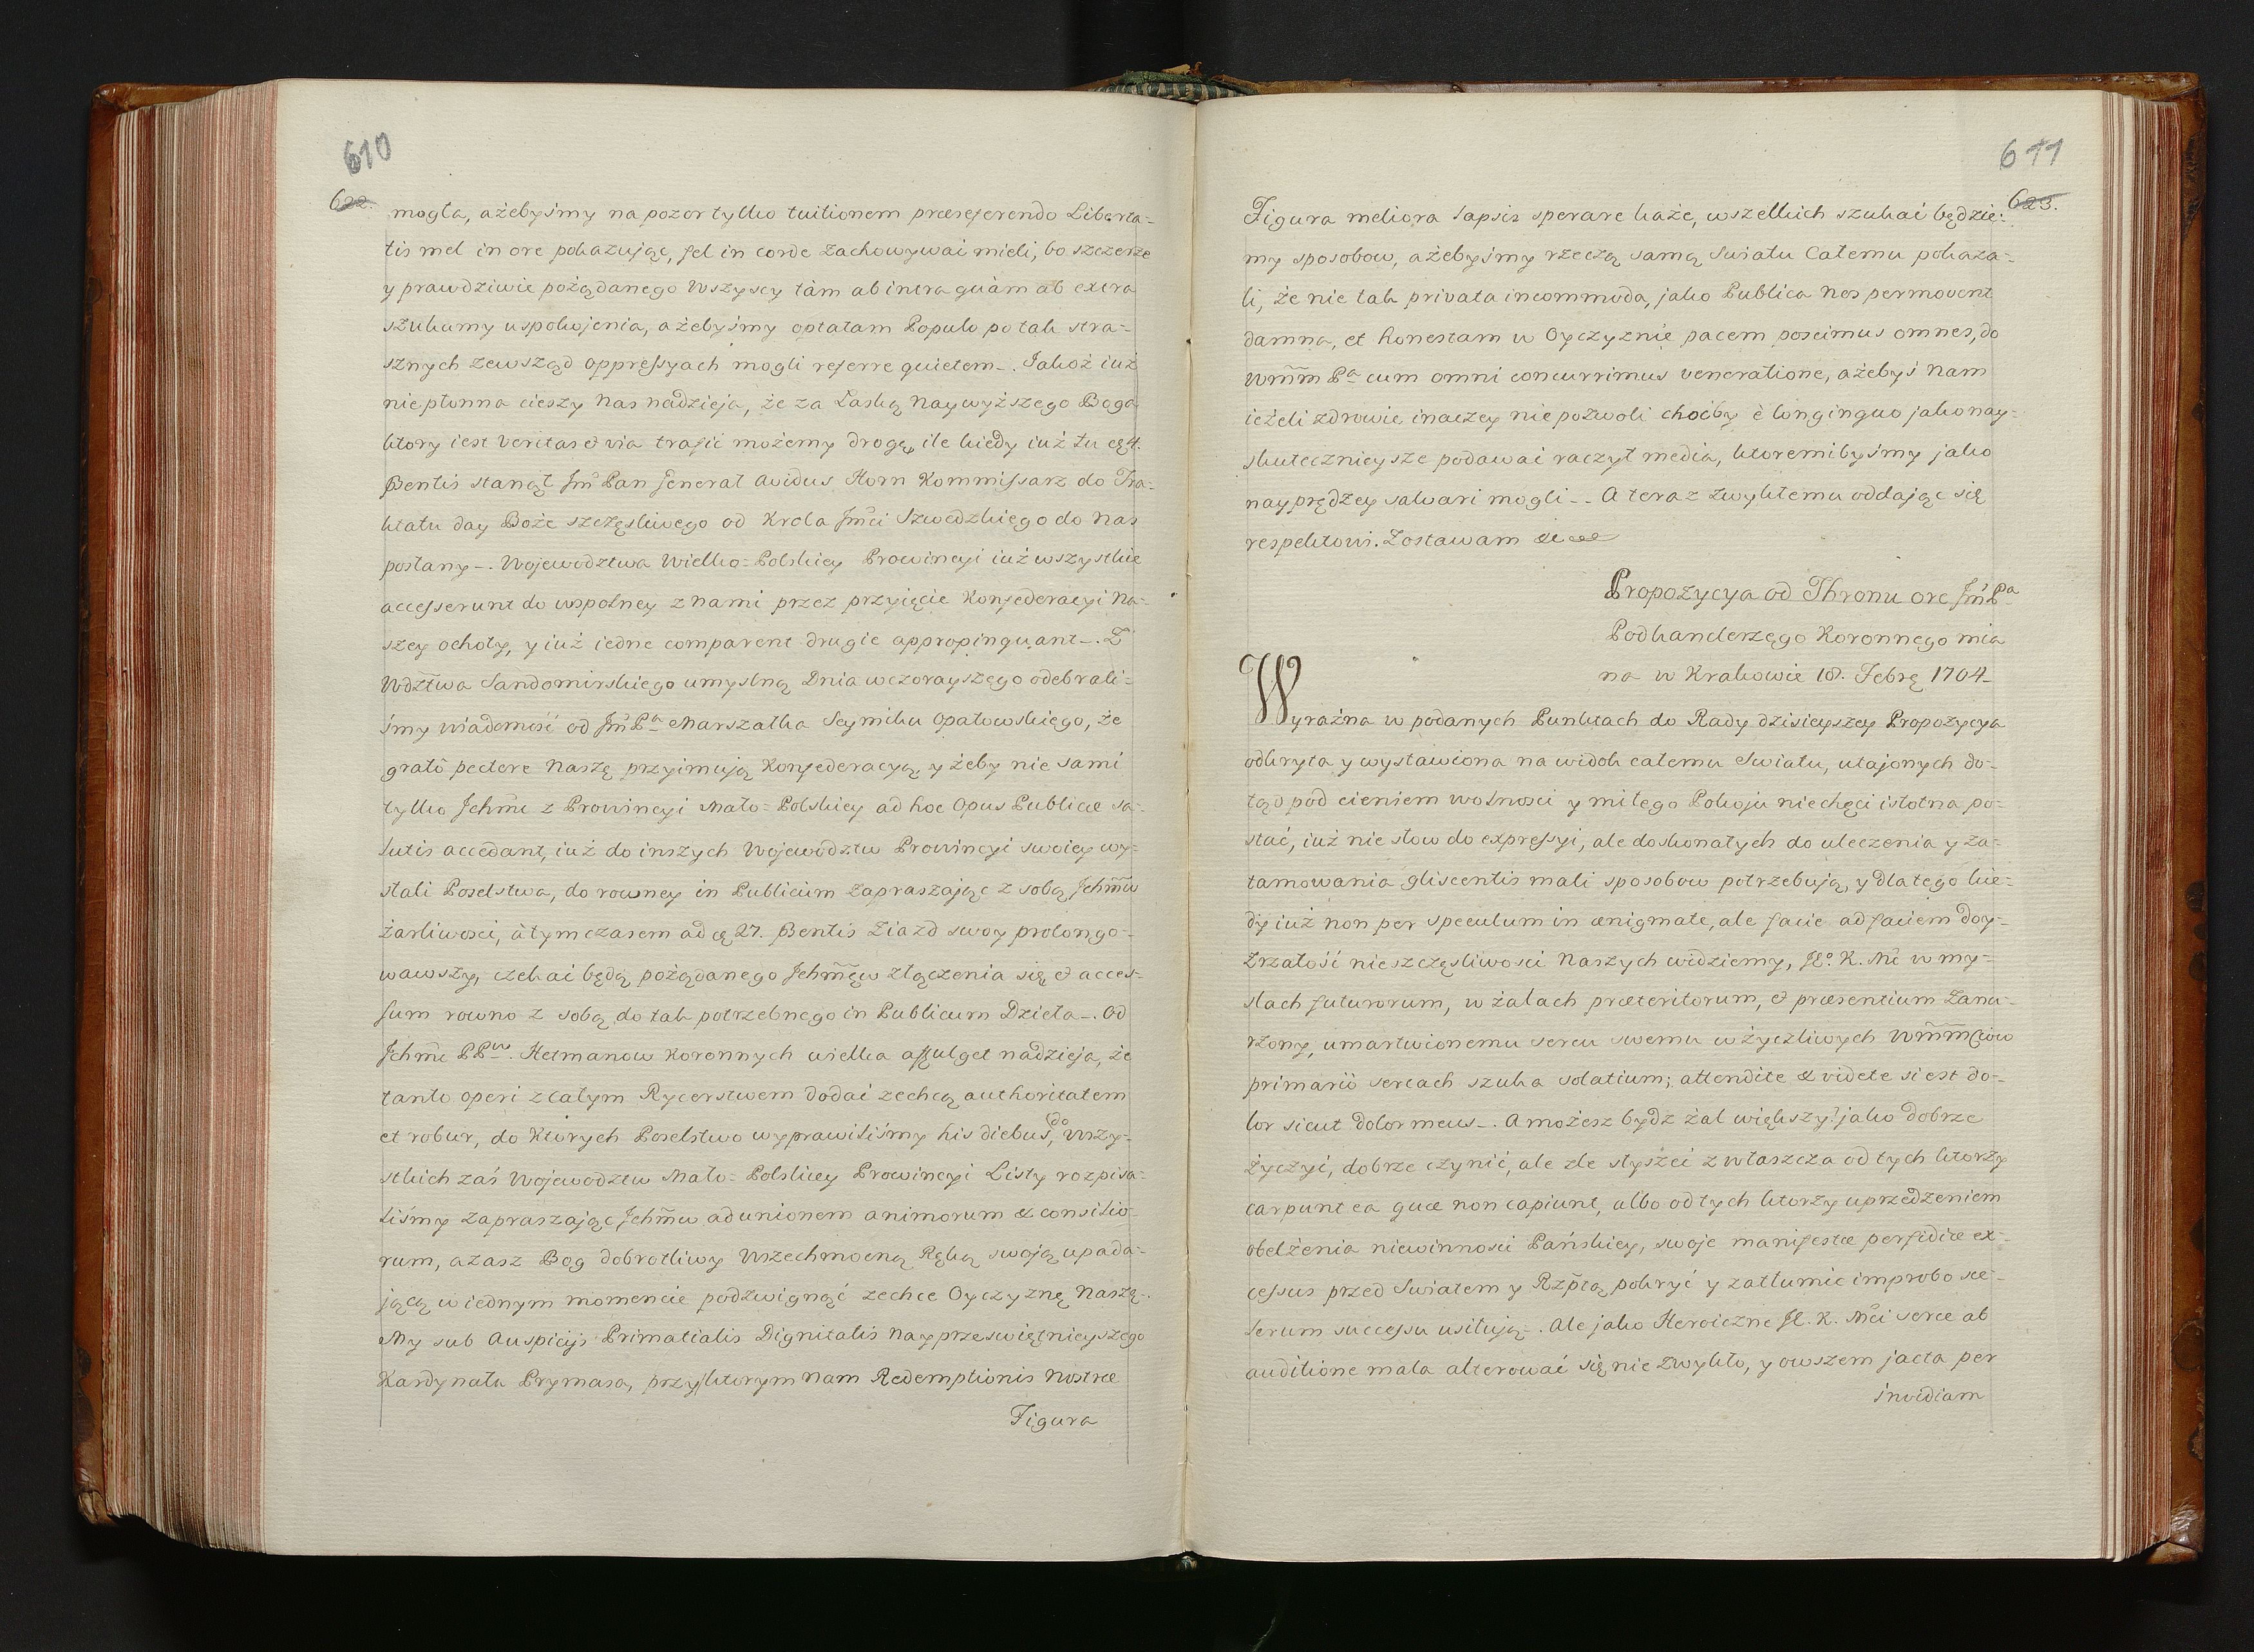 610
622.
mogła, ażebyśmy na pozor tylko tuitionem præseferendo Liberta=
tis mel in ore pokazując, fel in corde zachowywai mieli, bo szczerze
y prawdziwie pożądanego Wszyscy tàm ab intra quàm ab extra
szukamy uspokojenia, ażebyśmy optatam Populo po tak stra=
sznych zewsząd oppressyach mogli referre quietem_. Jakoż iuż
niepłonna cieszy nas nadzieja, że za Łaską Naywyższego Boga
ktory iest Veritas et via trafić możemy drogę, ile kiedy iuż tu 4.
Bentis stanął Jm̃ Pan General Avidus Horn Kommissarz do Tra=
ktatu day Boże szczęsliwego od Krola Jm̃ci Szwedzkiego do nas
posłany_. Wojewodztwa Wielko=Polskiey Prowincyi iuż wszystkie
accesserunt do wspolney z nami przez przyięcie Konfederacyi Na=
szey ochoty, y iuż iedne comparent drugie appropinquant_. Z
Wdztwa Sandomirskiego umyslną Dnia wczorayszego odebrali=
śmy wiadomość od Jm̃ Pa Marszałka Seymiku Opatowskiego, że
gratô pectore Naszę przyimują Konfederacyą, y żeby nie sami
tylko Jchm̃ z Prowincyi Mało=Polskiey ad hoc Opus Publicæ sa=
lutis accedant, iuż do inszych Wojewodztw Prowincyi swoiey wy=
słali Poselstwa, do rowney in Publicum zapraszając z sobą Jchm̃w
żarliwosci, à tym czasem ad 27. Bentis Ziazd swoy prolongo=
wawszy, czekai będą pożądanego Jchm̃w złączenia się et acces=
sum rowno z sobą do tak potrzebnego in Publicum Dzieła_. Od
Jchm̃ PPw. Hetmanow Koronnych wielka affulget nadzieja, że
tanto operi z całym Rycerstwem dodai zechcą authoritatem
et robur, do Ktorych Poselstwo wyprawiliśmy his diebus, do Wszy=
stkich zaś Wojewodztw Mało=Polskiey Prowincyi Listy rozpisa=
liśmy zapraszając Jchm̃w ad unionem animorum et consilio=
rum, azasz Bog dobrotliwy Wszechmocną Ręką swoją upada=
jącą w iednym momencie podzwignąć zechce Oyczyznę Naszą.
My sub Auspicijs Primatialis Dignitatis Nayprzeswiętnieyszego
Kardynała Prymasa, przy ktorym nam Redemptionis Nostræ
Figura
611
623.
Figura meliora lapsis sperare każe, wszelkich szukai będzie=
my sposobow, ażebyśmy rzeczą samą Swiatu Całemu pokaza=
li, że nie tak privata incommoda, jako Publica nos permovent
damna, et honestam w Oyczyznie pacem poscimus omnes, do
Wm̃m Pa cum omni concurrimus veneratione, ażebyś Nam
ieżeli zdrowie inaczey nie pozwoli choćby è longinquo jako nay=
skutecznieysze podawai raczył media, ktoremibyśmy jako
nayprędzey salvari mogli_. A teraz zwykłemu oddając się
respektowi. Zostawam &c
Propozycya od Thronu ore Jm̃ Pa
Podkanclerzego Koronnego mia
na w Krakowie 18. Febrę 1704_
Wyraźna w podanych Punktach do Rady dzisieyszey Propozycya
odkryta y wystawiona na widok całemu Swiatu, utajonych do=
tąd pod cieniem wolnosci y miłego Pokoju niechęci istotna po=
stać, iuż nie słow do expressyi, ale doskonałych do uleczenia y za=
tamowania gliscentis mali sposobow potrzebują, y dla tego kie=
dy iuż non per speculum in ænigmate, ale facie ad faciem doy=
zrzałość nieszczęsliwosci Naszych widziemy, Jo. K. Mć w my=
slach futurorum, w żalach præteritorum, et præsentium zanu=
rzony, umartwionemu sercu swemu w życzliwych Wm̃m
primarió sercach szuka solatium; attendite & videte si est do=
lor sicut dolor meus_. A możesz bydz żal większy? jako dobrze
życzyć, dobrze czynić, ale zle słyszeć zwłaszcza od tych ktorzy
carpunt ea quæ non capiunt, albo od tych ktorzy uprzedzeniem
obelżenia niewinnosci Pańskiey, swoje manifestæ perfidiæ ex=
cessus przed Swiatem y Rzptą pokryć y zatłumic improbo sce=
lerum successu usiłują_. Ale jako Heroiczne J. K. Mći serce ab
auditione mala alterować się nie zwykło, y owszem jacta per
invidiam